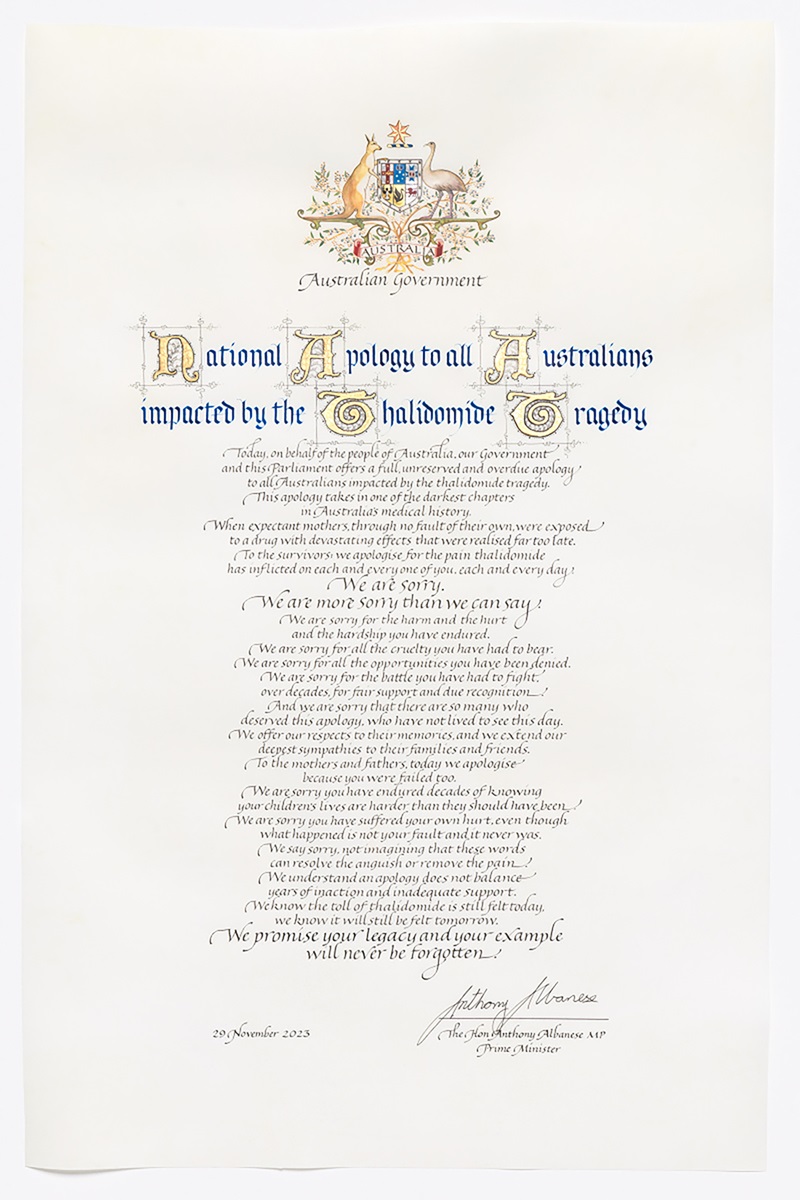 AUSTRALIA
Australian Government
National Apology to all Australians
impacted by the Thalidomide Tragedy
Today, on behalf of the people of Australia, our Government
and this Parliament offers a full, unreserved and overdue apology
to all Australians impacted by the thalidomide tragedy.
This apology takes in one of the darkest chapters
in Australia's medical history.
When expectant mothers, through no fault of their own, were exposed
to a drug with devastating effects that were realised far too late.
To the survivors: we apologise for the pain thalidomide
has inflicted on each and every one of you, each and every day.
We are sorry.
We are more sorry than we can say.
We are sorry for the harm and the hurt
and the hardship you have endured.
We are sorry for all the cruelty you have had to bear.
We are sorry for all the opportunities you have been denied.
We are sorry for the battle you have had to fight,
over decades, for fair support and due recognition.
And we are sorry that there are so many who
deserved this apology, who have not lived to see this day.
We offer our respects to their memories, and we extend our
deepest sympathies to their families and friends.
To the mothers and fathers, today we apologise
because you were failed too.
We are sorry you have endured decades of knowing
your children's lives are harder than they should have been.
We are sorry you have suffered your own hurt, even though
what happened is not your fault and it never was.
We say sorry, not imagining that these words
can resolve the anguish or remove the pain.
We understand an apology does not balance
years of inaction and inadequate support.
We know the toll of thalidomide is still felt today,
we know it will still be felt tomorrow.
We promise your legacy and your example
will never be forgotten.
Anthony Albanese
29 November 2023
The Hon Anthony Albanese MP
Prime Minister